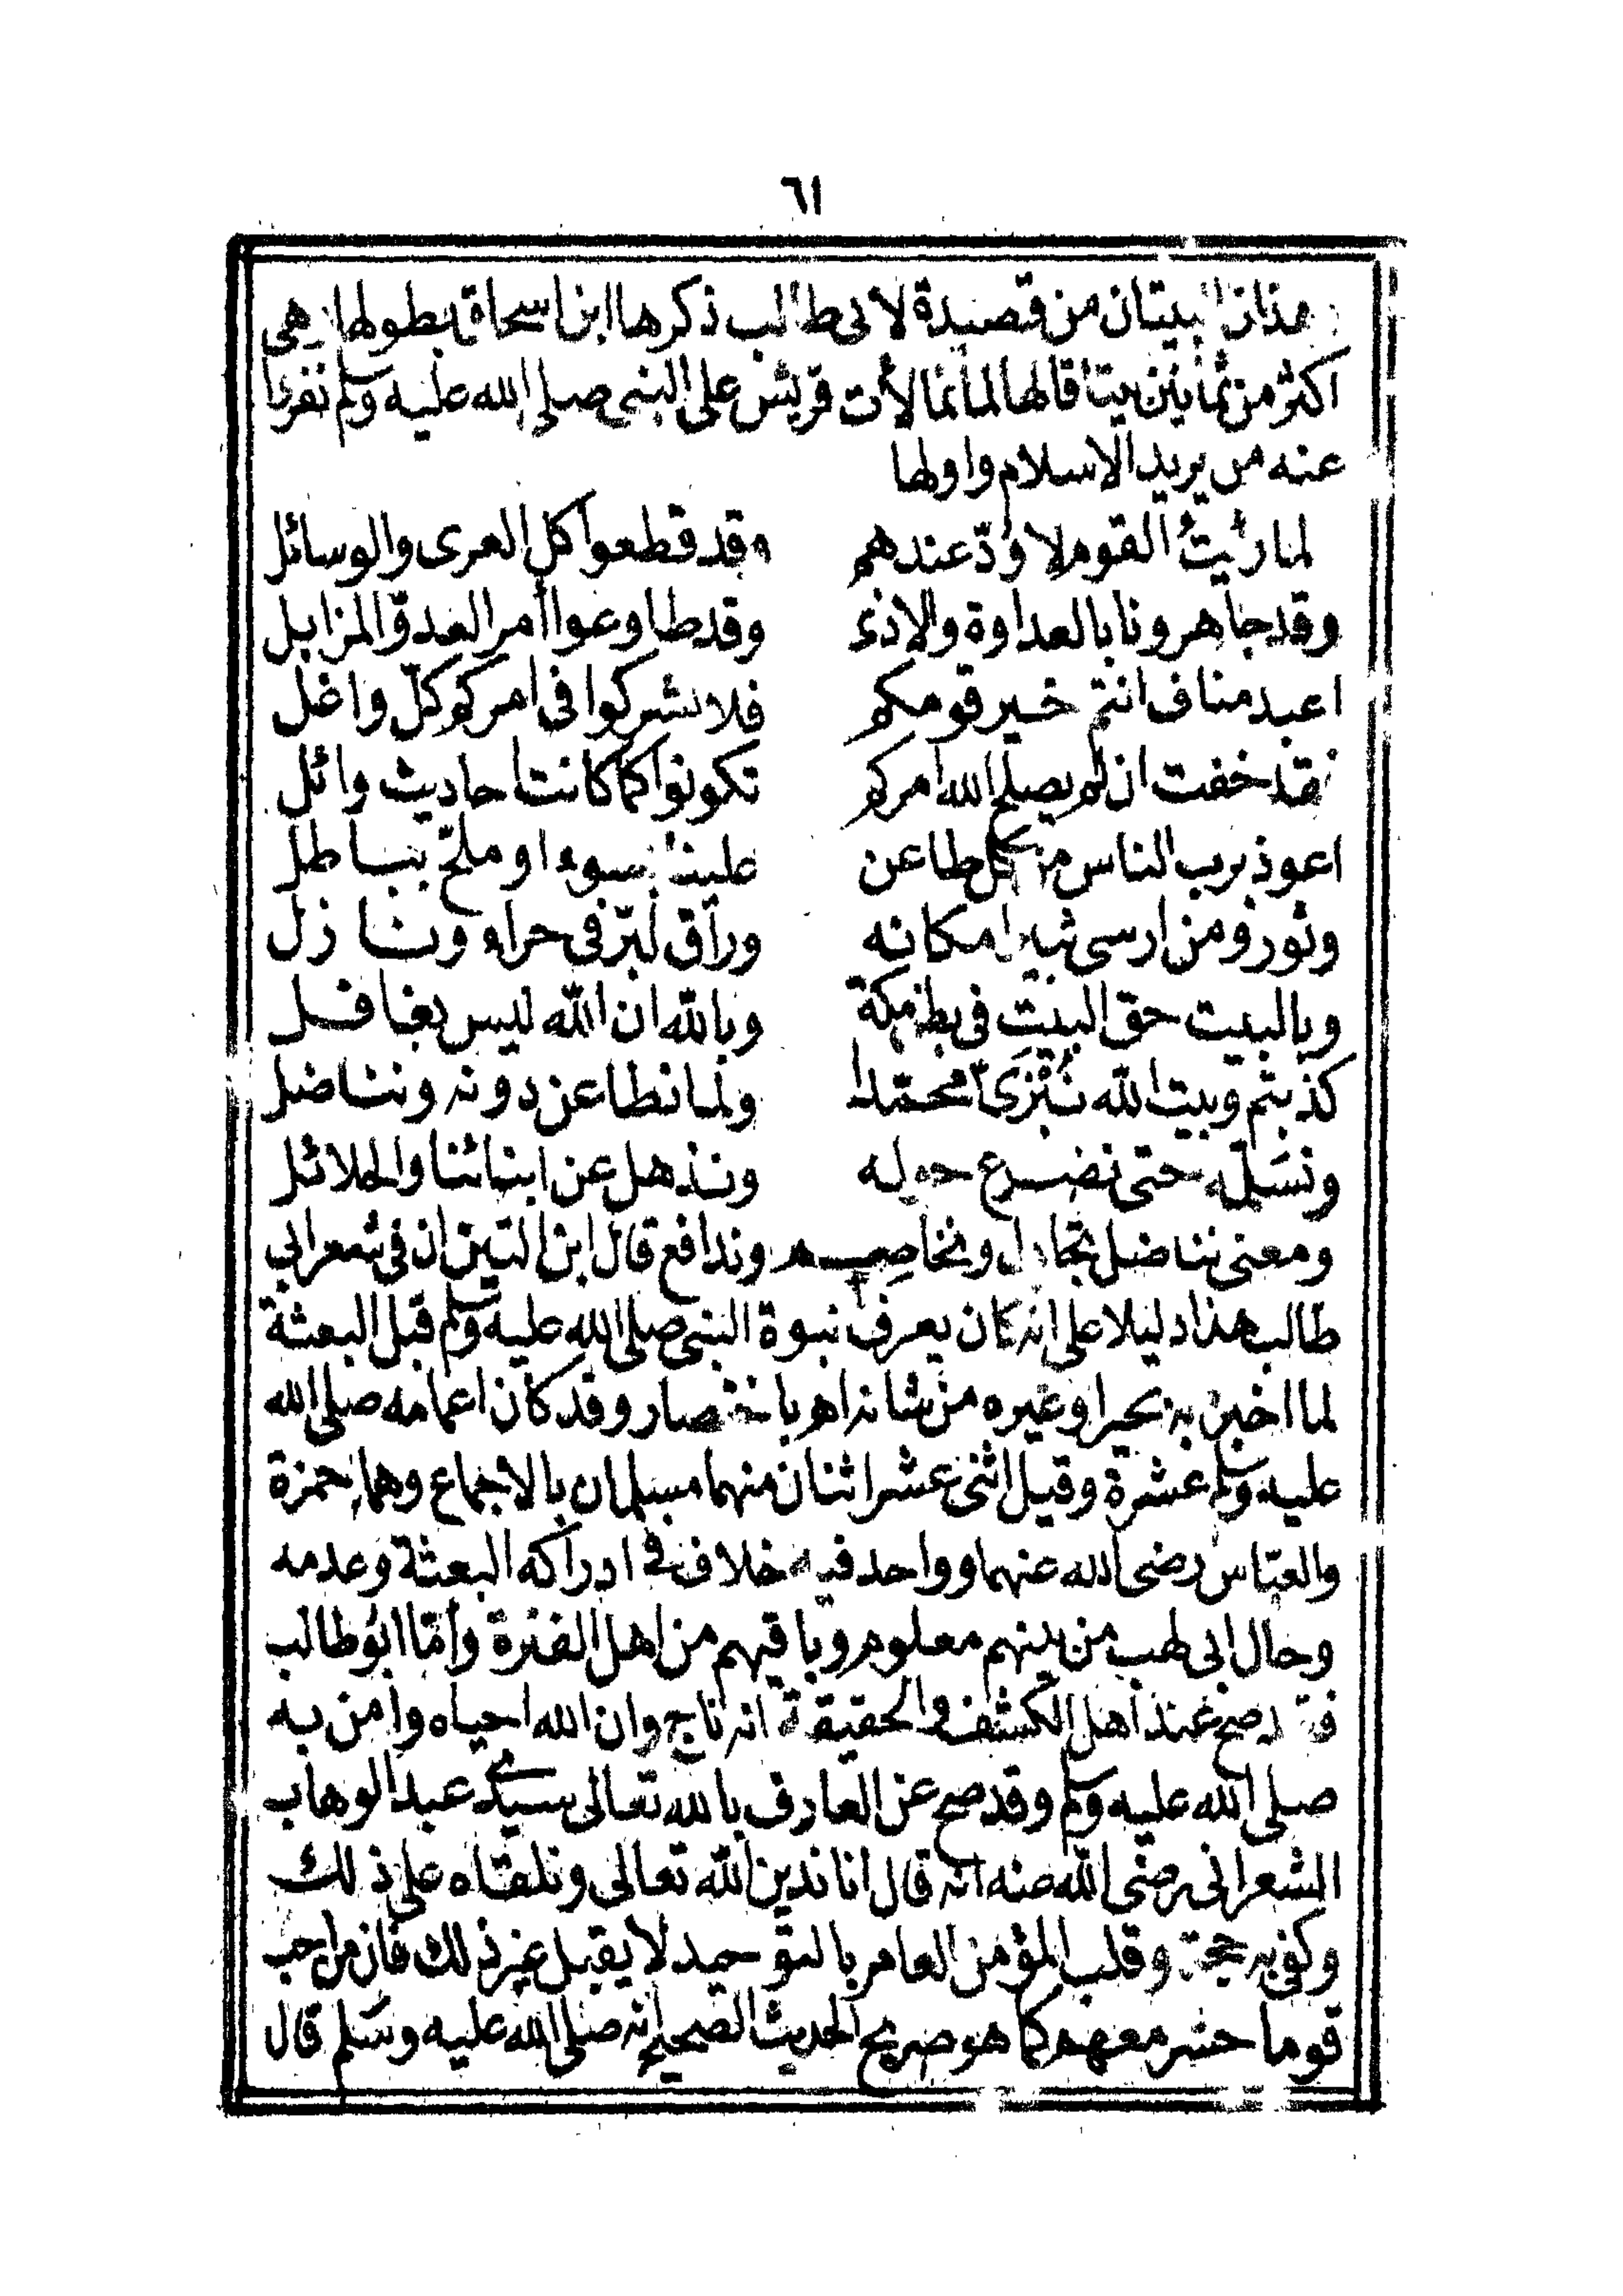 ٦١
هذان البيتان من قصيدة لابى طالب ذكرها ابن اسحاق بطولها وهى
اكثر من ثمانين بيتا قالها لما تمالأت قريش على النبى صلى الله عليه وسلم ونفروا
عنه من يريد الاسلام واولها
لما رئيتُ القوم لا ودّ عندهم وقد قطعوا كل العرى والوسائل
وقد جاهرونا بالعداوة والاذى وقد طاوعوا أمر العدوّ المزايل
اعبد مناف انتم خير قومكم فلا تشركوا فى امركم كلّ واغل
فقد خفت ان لم يصلح الله امركم تكونوا كما كانت احاديث وائل
اعوذ برب الناس من كل طاعن علينا بسوء او ملحّ بباطل
وثور ومن ارسى ثبيرا مكانه وراق لبرّ فى حراء ونازل
وبالبيت حق البيت فى بطن مكة وبالله ان الله ليس بغافل
كذبتم وبيت الله نُبْزَى محمّدا ولما نطاعن دونه ونناضل
ونسَلّمه حتى نضرع حوله ونذهل عن ابنائنا والحلائل
ومعنى نناضل نجادل ونخاصم وندافع قال ابن التين ان فى شعر ابى
طالب هذا دليلا على انه كان يعرف نبوة النبى صلى الله عليه وسلم قبل البعثة
لما اخبره به بحيرا وغيره من شانه اهـ باختصار وقد كان اعمامه صلى الله
عليه وسلم عشرة وقيل اثنى عشر اثنان منهما مسلمان بالاجماع وهما حمزة
والعبّاس رضى الله عنهما وواحد فيه خلاف فى ادراكه البعثة وعدمه
وحال ابى لهب من بينهم معلوم وباقيهم من اهل الفترة وأمّا ابو طالب
فقد صح عند أهل الكشف والحقيقة انه ناج وان الله احياه وآمن به
صلى الله عليه وسلم وقد صح عن العارف بالله تعالى سيدى عبد الوهاب
الشعرانى رضى الله عنه انه قال انا ندين الله تعالى ونلقاه على ذلك
وكفى به حجة وقلب المؤمن العامر بالتوحيد لا يقبل غير ذلك فان من احب
قوما حشر معهم كما هو صريح الحديث الصحيح انه صلى الله عليه وسلم قال